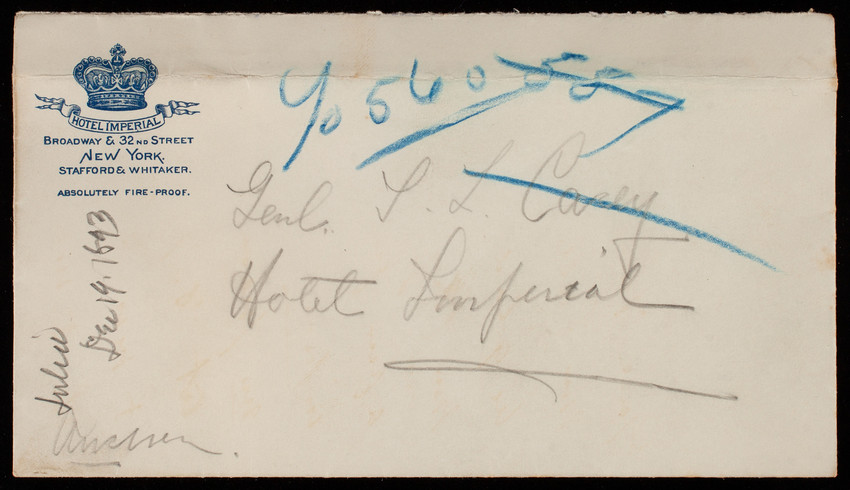 HOTEL IMPERIAL
BROADWAY & 32ND STREET
NEW YORK.
STAFFORD & WHITAKER.
ABSOLUTELY FIRE-PROOF.
Genl. T. L. Casey
Hotel Imperial
Julia
Dec 19. 1893
Answer.